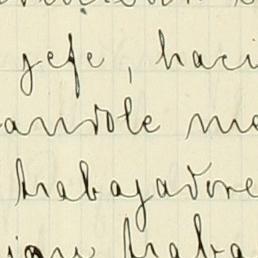 jefe, haci
andole me
trabajadore
traba